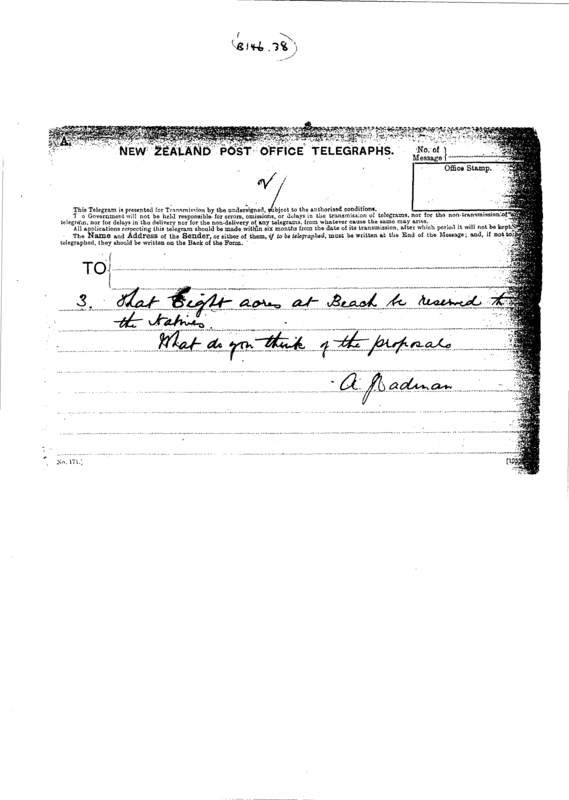 (B146.38)
A.
NEW ZEALAND POST OFFICE TELEGRAPHS.
No. of
Message
Office Stamp.
This Telegram is presented for Transmission by the undersigned, subject to the authorised conditions.
The Government will not be held responsible for errors, omissions, or delays in the transmission of telegrams, nor for the non-transmission of
telegram, nor for delays in the delivery nor for the non-delivery of any telegrams, from whatever cause the same may arise.
All applications respecting this telegram should be made within six months from the date of its transmission, after which period it will not be kept.
The Name and Address of the Sender, or either of them, if to be telegraphed, must be written at the End of the Message; and, if not to be
telegraphed, they should be written on the Back of the Form.
TO
3. That Eight acres at Beach be reserved to
the Natives.
What do you think of the proposals
A.
No. 171.]